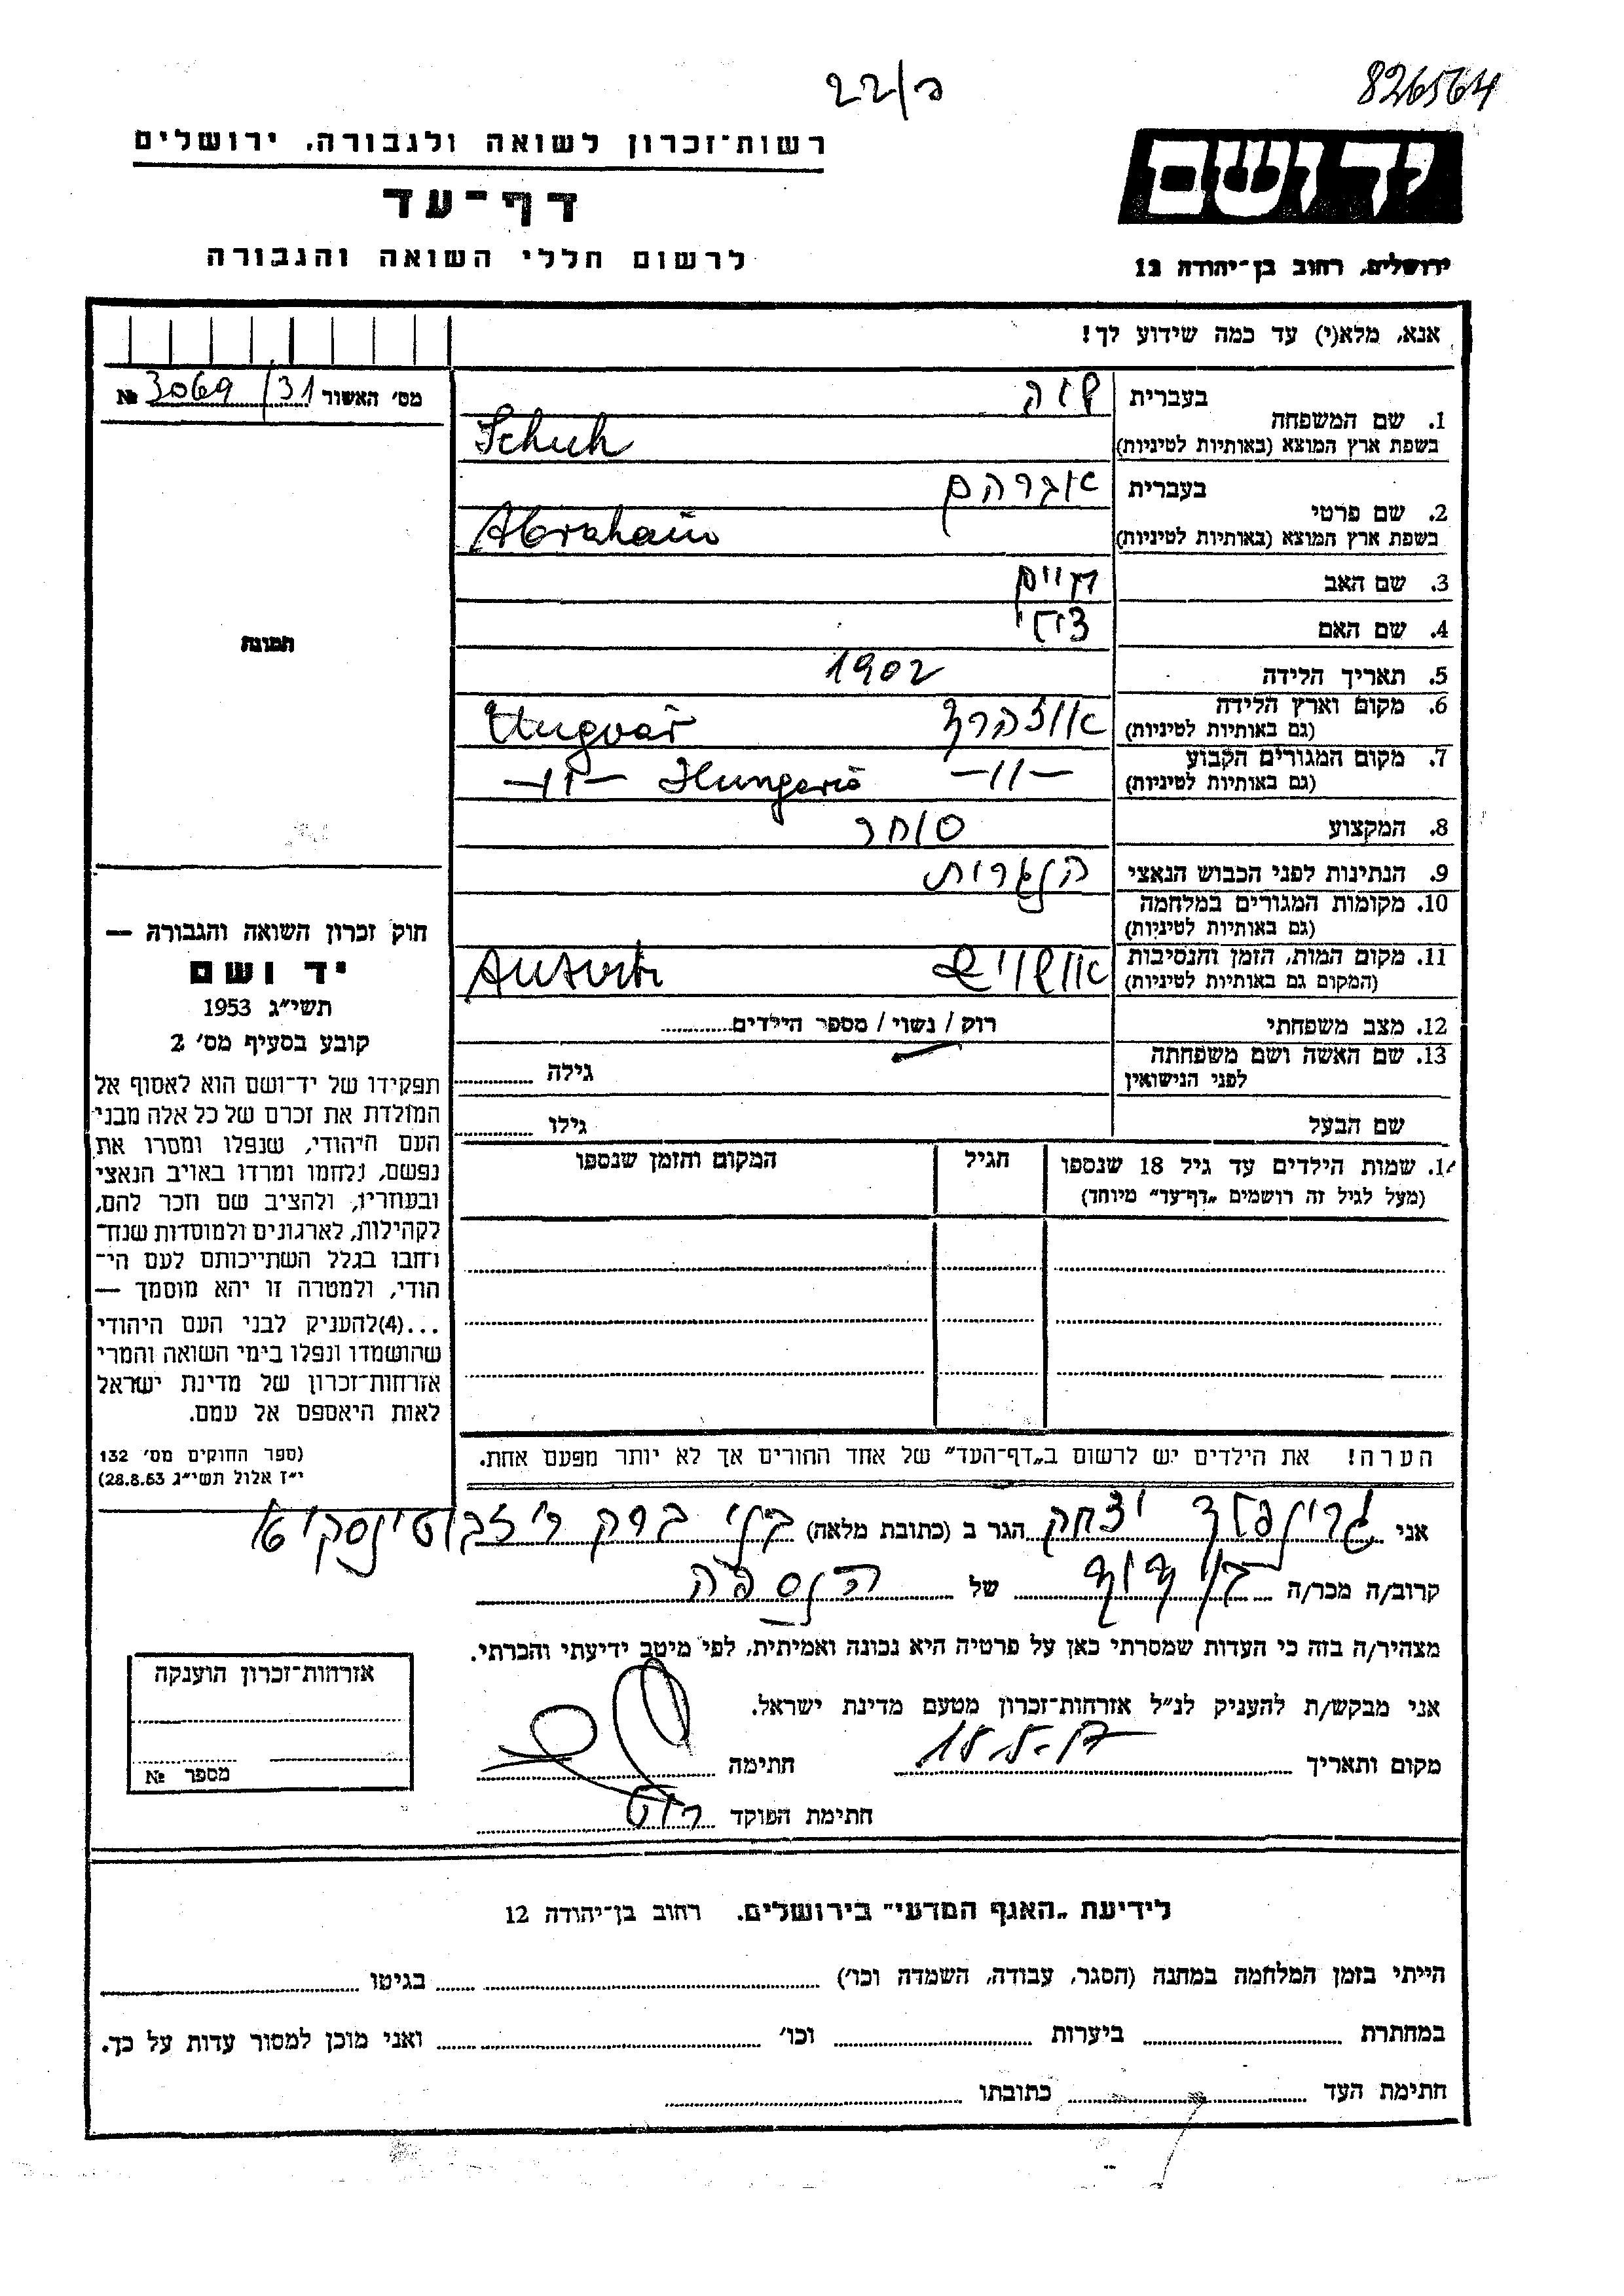 22/ כ
826564
רשות־זכרון לשואה ולגבורה, ירושלים
דף־עד
לרשום חללי השואה והגבורה
יד ושם
ירושלים, רחוב בן־יהודה 12
אנא, מלא(י) עד כמה שידוע לך!
מס׳ האשור № 3069/31
1. שם המשפחה בעברית שוה
בשפת ארץ המוצא (באותיות לטיניות) Schuh
2. שם פרטי בעברית אברהם
בשפת ארץ המוצא (באותיות לטיניות) Abraham
3. שם האב חיים
4. שם האם
5. תאריך הלידה 1902
6. מקום וארץ הלידה
(גם באותיות לטיניות) Ungvar
7. מקום המגורים הקבוע —״—
(גם באותיות לטיניות) —״— Hungaria
8. המקצוע סוחר
9. הנתינות לפני הכבוש הנאצי הונגרית
10. מקומות המגורים במלחמה
(גם באותיות לטיניות)
11. מקום המות, הזמן והנסיבות אושוויץ
(המקום גם באותיות לטיניות)
12. מצב משפחתי רוק / נשוי / מספר הילדים
13. שם האשה ושם משפחתה
לפני הנישואין גילה
שם הבעל גילו
תמונה
חוק זכרון השואה והגבורה —
יד ושם
תשי״ג 1953
קובע בסעיף מס׳ 2
תפקידו של יד־ושם הוא לאסוף אל
המולדת את זכרם של כל אלה מבני
העם היהודי, שנפלו ומסרו את
נפשם, נלחמו ומרדו באויב הנאצי
ובעוזריו, ולהציב שם וזכר להם,
לקהילות, לארגונים ולמוסדות שנח־
רחבו בגלל השתייכותם לעם הי־
הודי, ולמטרה זו יהא מוסמך —
...(4)להעניק לבני העם היהודי
שהושמדו ונפלו בימי השואה והמרי
אזרחות־זכרון של מדינת ישראל
לאות היאספם אל עמם.
(ספר החוקים מס׳ 132
י״ז אלול תשי״ג 28.8.53)
1. שמות הילדים עד גיל 18 שנספו
(מעל לגיל זה רושמים „דף־עד״ מיוחד)
הגיל
המקום והזמן שנספו
הערה! את הילדים יש לרשום ב„דף־העד״ של אחד ההורים אך לא יותר מפעם אחת.
אני גרינפלד יצחק הגר ב (כתובת מלאה) בני ברק ז׳בוטינסקי
קרוב/ה מכר/ה בן דוד של הנספה
מצהיר/ה בזה כי העדות שמסרתי כאן על פרטיה היא נכונה ואמיתית, לפי מיטב ידיעתי והכרתי.
אני מבקש/ת להעניק לנ״ל אזרחות־זכרון מטעם מדינת ישראל.
מקום ותאריך חתימה
חתימת הפוקד
אזרחות־זכרון הוענקה
מספר №
לידיעת „האגף המדעי״ בירושלים. רחוב בן־יהודה 12
הייתי בזמן המלחמה במחנה (הסגר, עבודה, השמדה וכו׳) בגיטו
במחתרת ביערות וכו׳ ואני מוכן למסור עדות על כך.
חתימת העד כתובתו